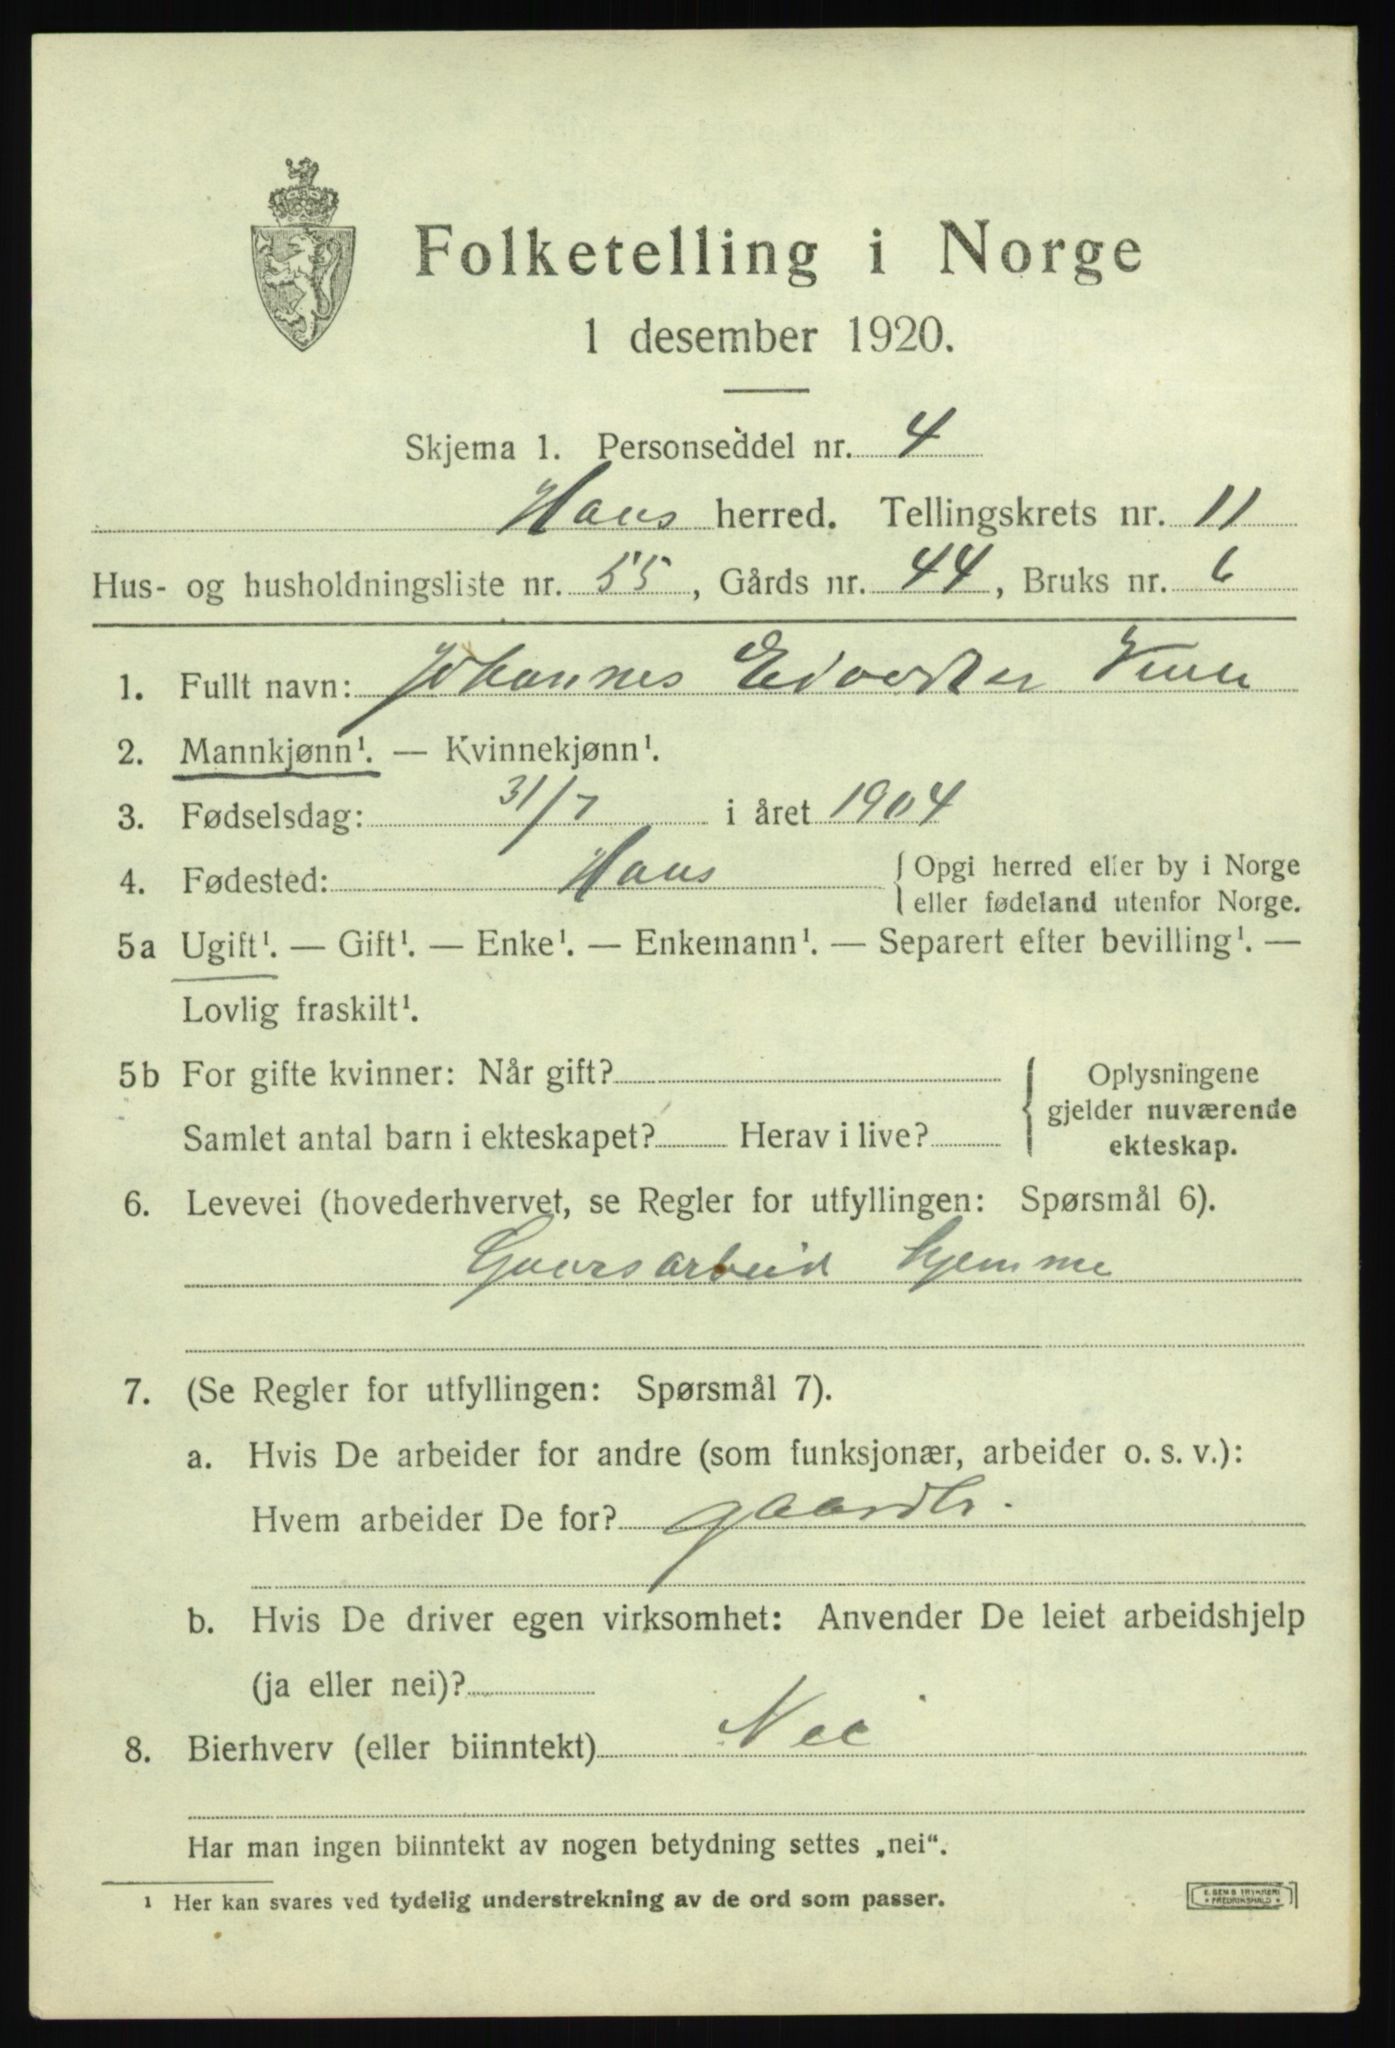 Folketelling i Norge
1 desember 1920.
Skjema 1. Personseddel nr. 4
Haus herred. Tellingskrets nr. 11
Hus- og husholdningsliste nr. 55, Gårds nr. 44, Bruks nr. 6
1. Fullt navn: Johannes
2. Mannkjønn¹. — Kvinnekjønn¹.
3. Fødselsdag: 31/7 i året 1904
4. Fødested: Haus { Opgi herred eller by i Norge
eller fødeland utenfor Norge.
5a Ugift¹. — Gift¹. — Enke¹. — Enkemann¹. — Separert efter bevilling¹. —
Lovlig fraskilt¹.
5b For gifte kvinner: Når gift?
Samlet antal barn i ekteskapet? Herav i live?
{ Oplysningene
gjelder nuværende
ekteskap.
6. Levevei (hovederhvervet, se Regler for utfyllingen: Spørsmål 6).
Gaarsarbeid hjemme
7. (Se Regler for utfyllingen: Spørsmål 7).
a. Hvis De arbeider for andre (som funksjonær, arbeider o. s. v.):
Hvem arbeider De for? gaardbr.
b. Hvis De driver egen virksomhet: Anvender De leiet arbeidshjelp
(ja eller nei)?
8. Bierhverv (eller biinntekt) Nei
Har man ingen biinntekt av nogen betydning settes „nei“.
¹ Her kan svares ved tydelig understrekning av de ord som passer.